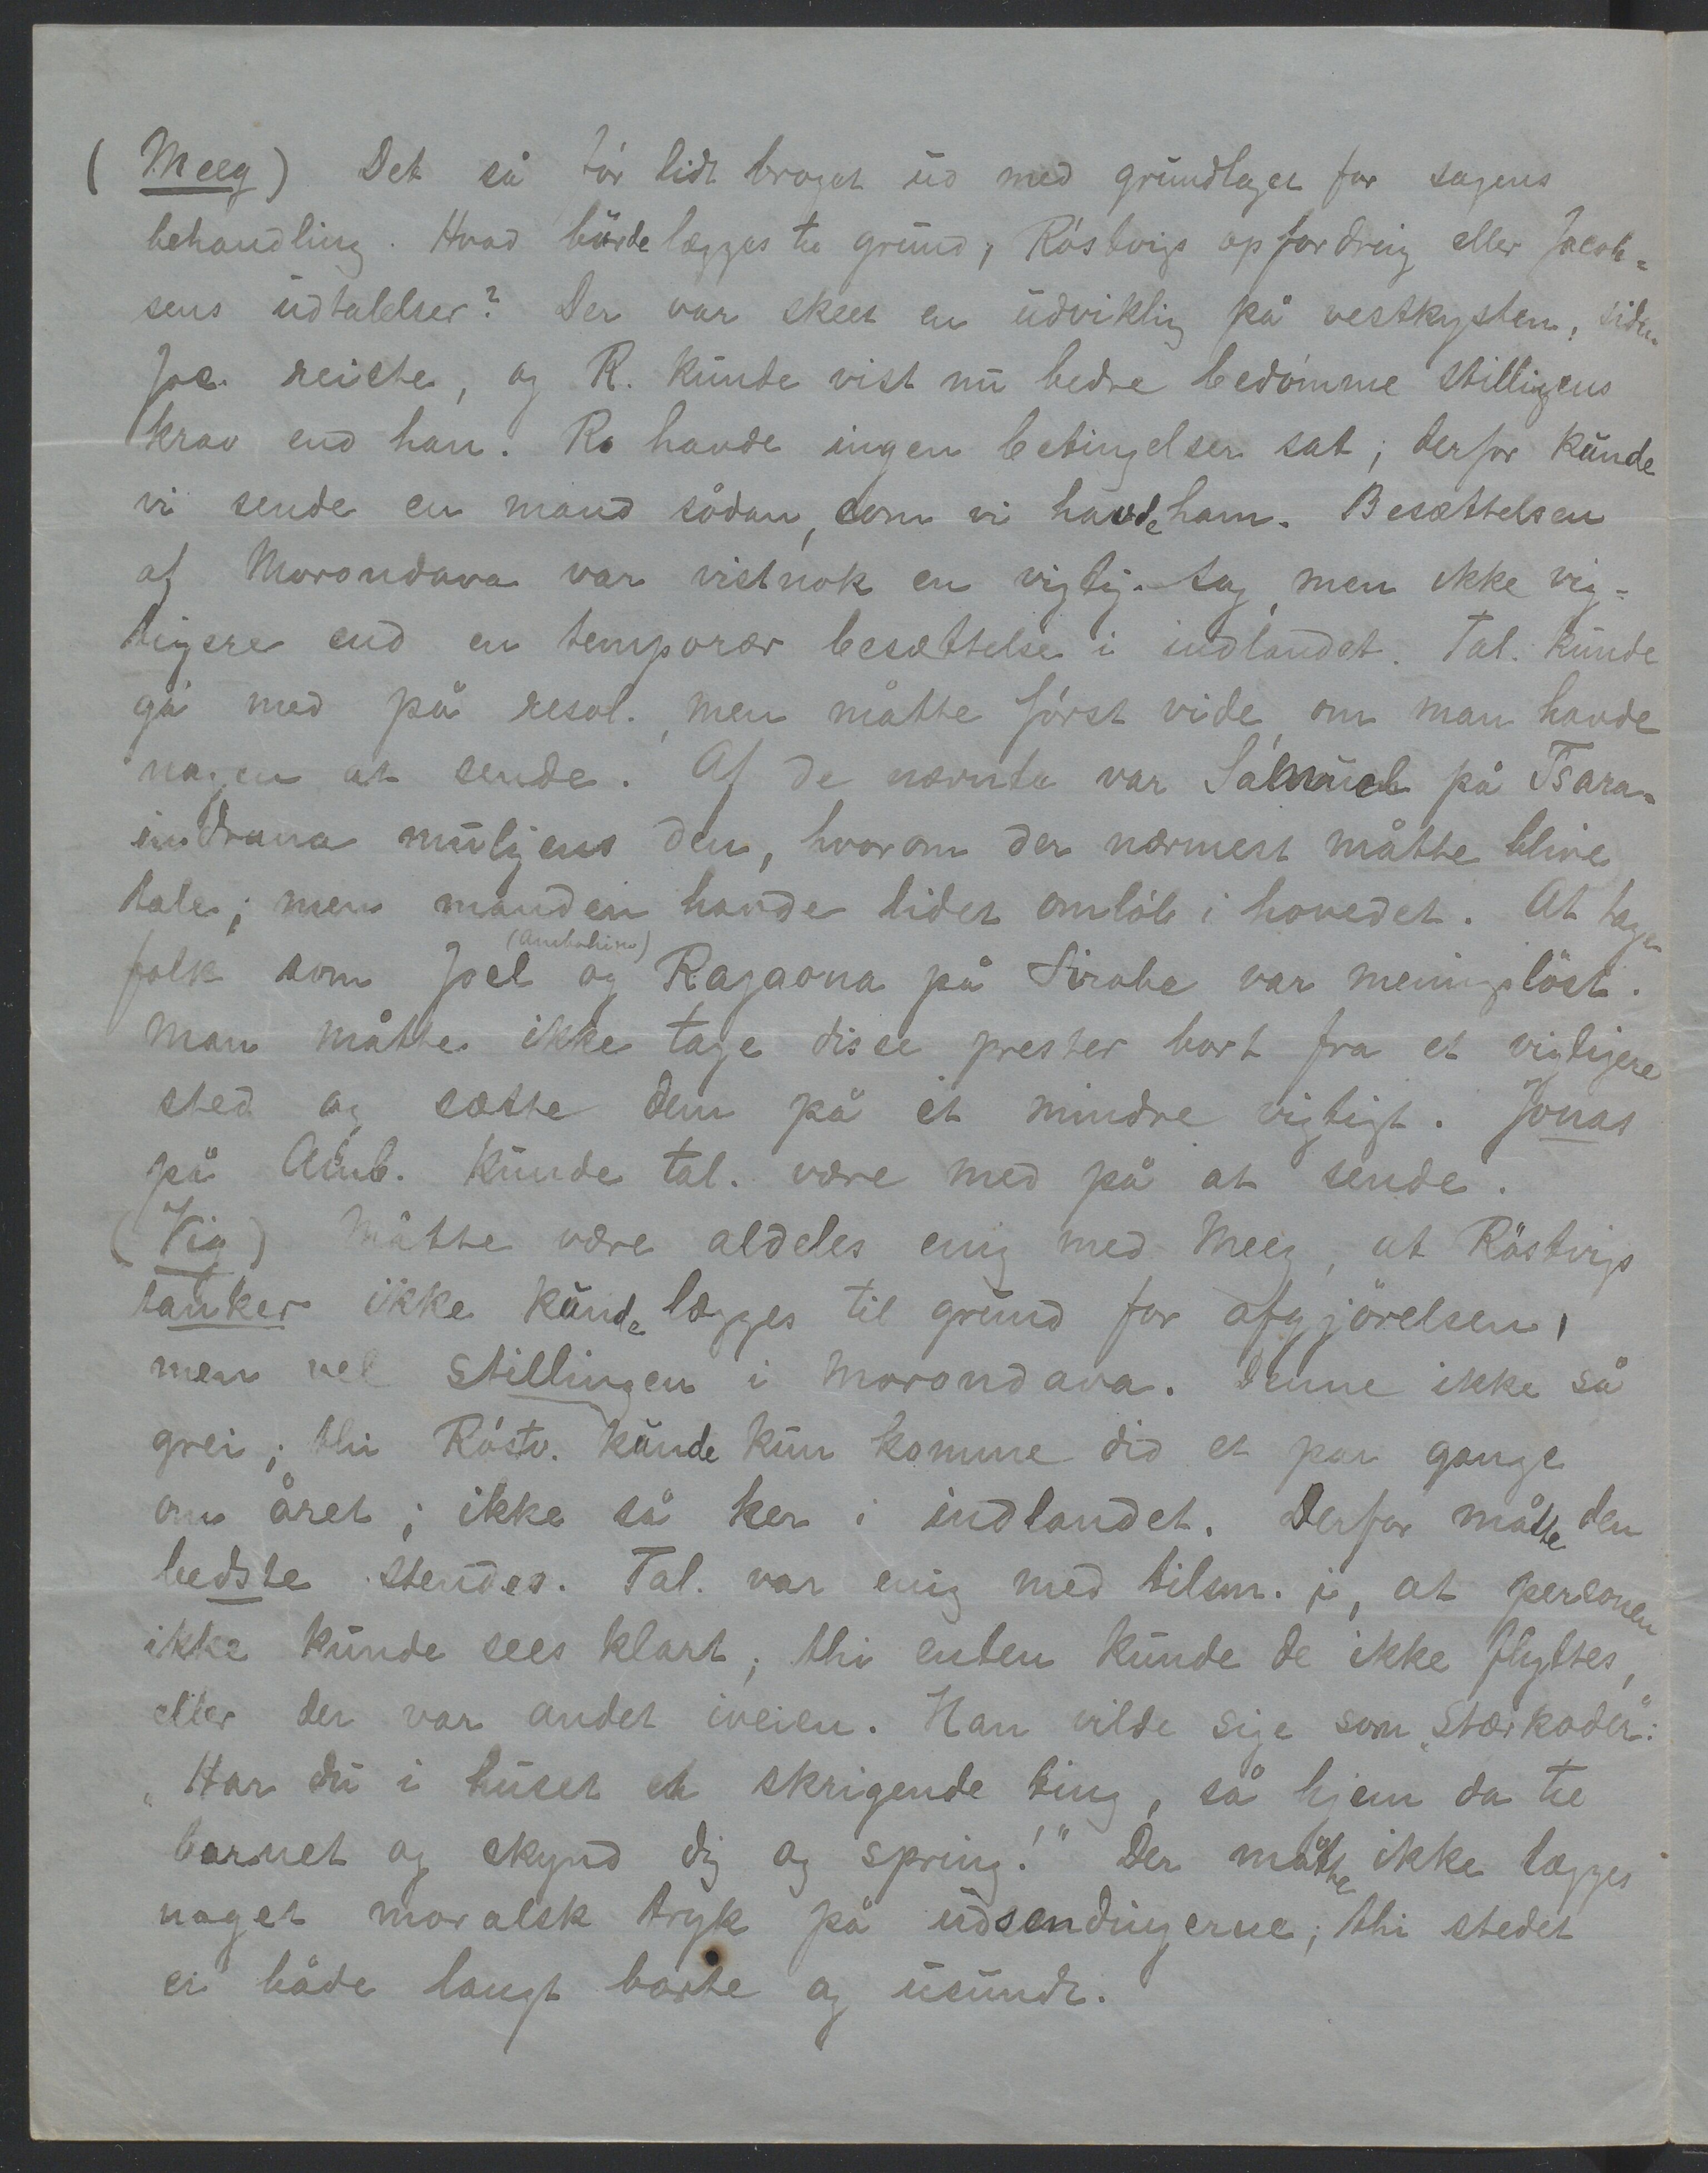 (Meeg) Det så før lidt broget ud med grundlaget for sagens
behandling. Hvad burde lægges til grund, Röstvigs opfordring eller Jacob=
sens udtalelser? Der var skeet en udvikling på vestkysten, siden
Jac. reiste, og R. kunde vist nu bedre bedømme stillingens
krav end han. R. havde ingen betingelser sat; derfor kunde
vi sende en mand sådan, som vi havde ham. Besættelsen
af Morondava var vistnok en vigtig sag, men ikke vig=
tigere end en temporær besættelse i indlandet. Tal. kunde
gå med på resol., men måtte først vide, om man havde
nogen at sende. Af de nævnte var Samuel på Tsara=
indrana muligens den, hvorom der nærmest måtte blive
tale; men manden havde lidet omløb i hovedet. At tage
folk som Joel (Ambohimo) og Ragaona på Sirabe var meningsløst.
Man måtte ikke tage disse prester bort fra et vigtigere
sted og sætte dem på et mindre vigtigt. Jonas
på Amb. kunde tal. være med på at sende.
(Vig) Måtte være aldeles enig med Meeg, at Röstvigs
tanker ikke kunde lægges til grund for afgjörelsen,
men vel stillingen i Morondava. Denne ikke så
grei; thi Röstv. kunde kun komme did et par gange
om året; ikke så her i indlandet. Derfor måtte den
bedste sendes. Tal. var enig med tilsm. i, at personen
ikke kunde sees klart, thi enten kunde de ikke flyttes,
eller der var andet iveien. Han vilde sige som "Stærkoder":
"Har du i huset et skrigende ting, så hjem da til
barnet og skynd dig og spring!" Der måtte ikke lægges
noget moralsk tryk på udsendingerne; thi stedet
er både langt borte og usundt.